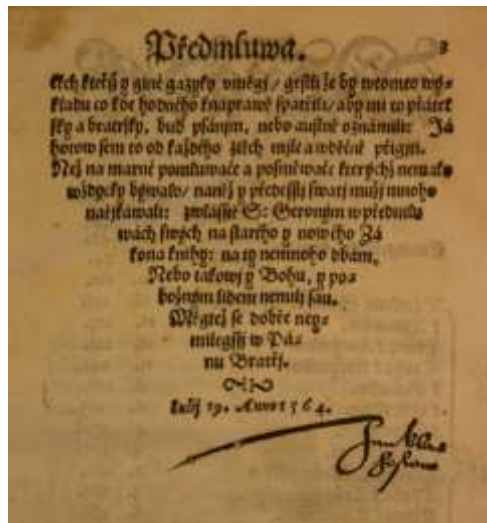 Předmluwa. 3
kých kteřijž y giné gazyky vmégj / gestli že by wtomto wý=
kladu co kde hodného knaprawě spatřili / aby mi to přátel
sky a bratrsky, buď psáným, nebo austně oznámili: Já
hotow sem to od každého zých mile a wděčně přigjti.
Než na marné pomluwače a posměwače kterýchž nemalo
wždycky býwalo / naněž y předessli swatj mužj mnoho
naějkáwali: zwlásstě S: Geronym w předmlu
wách swých na starého y nowého Zá
kona knihy: na ty nemnoho dbám.
Nebo takowj y Bohu, y po=
božným lidem nemilj sau.
Mějtež se dobře ney=
milegssj w Pá=
nu Bratřj.
19. Anno 1564.